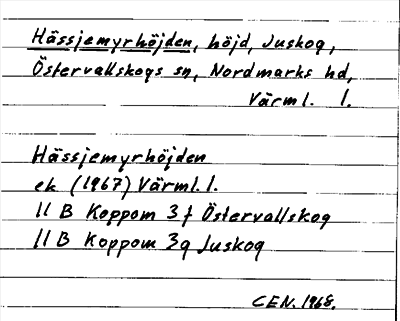 Hässjemyrhöjden, höjd, Juskog,
Östervallskogs sn, Nordmarks hd,
Värml. l.
Hässjemyrhöjden
ek (1967) Värml. l.
11 B Koppom 3 f Östervallskog
11 B Koppom 3 g Juskog
CEN. 1968.